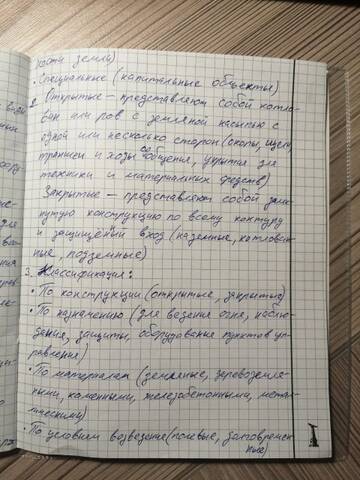 ности земли)
• Специальные (капитальные объекты)
2. Открытые – представляют собой котло-
ван или ров с земляной насыпью с
одной или несколько сторон (окопы, щели,
траншеи и ходы сообщения, укрытия для
техники и материальных средств)
Закрытые – представляют собой замк-
нутую конструкцию по всему контуру
и защищённый вход (наземные, котлован-
ные, подземные)
3. Классификация:
• По конструкции (открытые, закрытые)
• По назначению (для ведения огня, наблю-
дения, защиты, оборудования пунктов уп-
равления)
• По материалам (земляные, деревоземля-
ными, каменными, железобетонными, метал-
лическими)
• По условиям возведение (полевые, долговремен-
ные)